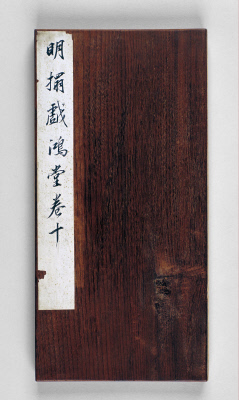 明搨戲鴻堂卷十